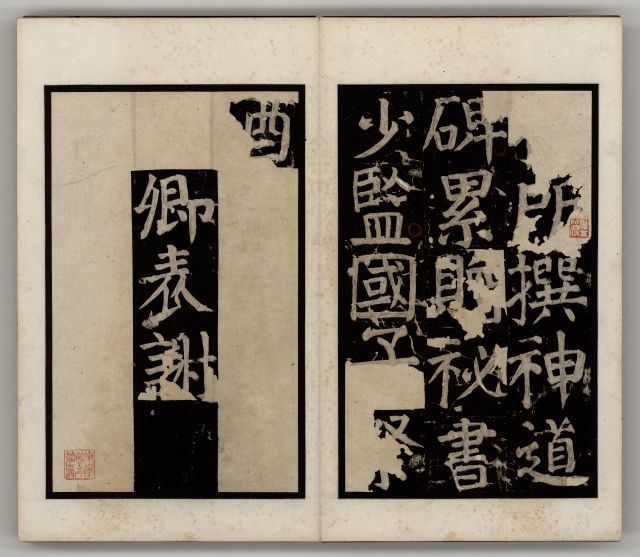 所撰神道
碑累贈秘書
少監國子祭
酉
卿表謝